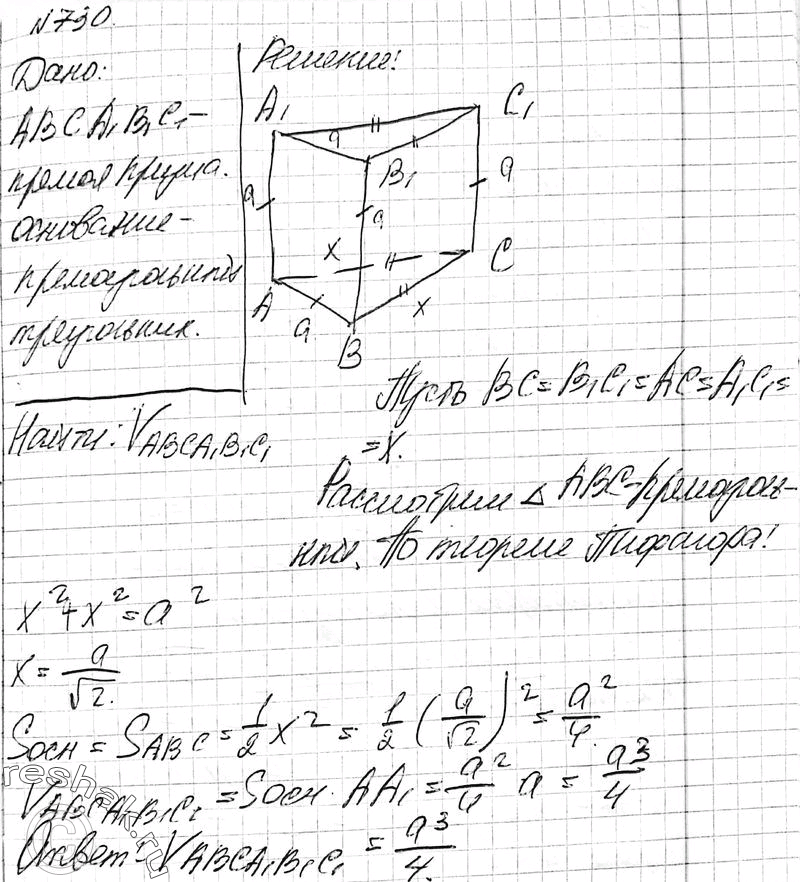 №730.
Дано:
ABCA₁B₁C₁-
прямая призма.
основание-
прямоугольный
треугольник.
Найти: V_ABCA₁B₁C₁
Решение:
A₁
C₁
a
B₁
a
a
a
x
C
A
a
x
B
Пусть BC=B₁C₁=AC=A₁C₁=
=x.
Рассмотрим △ ABC-прямоуголь-
ный. По теореме Пифагора:
x²+x²=a²
x=a/√2.
Sосн = S_ABC = 1/2 x² = 1/2 (a/√2)² = a²/4.
V_ABCA₁B₁C₁ = Sосн · AA₁ = a²/4 a = a³/4
Ответ: V_ABCA₁B₁C₁ = a³/4.
reshak.ru